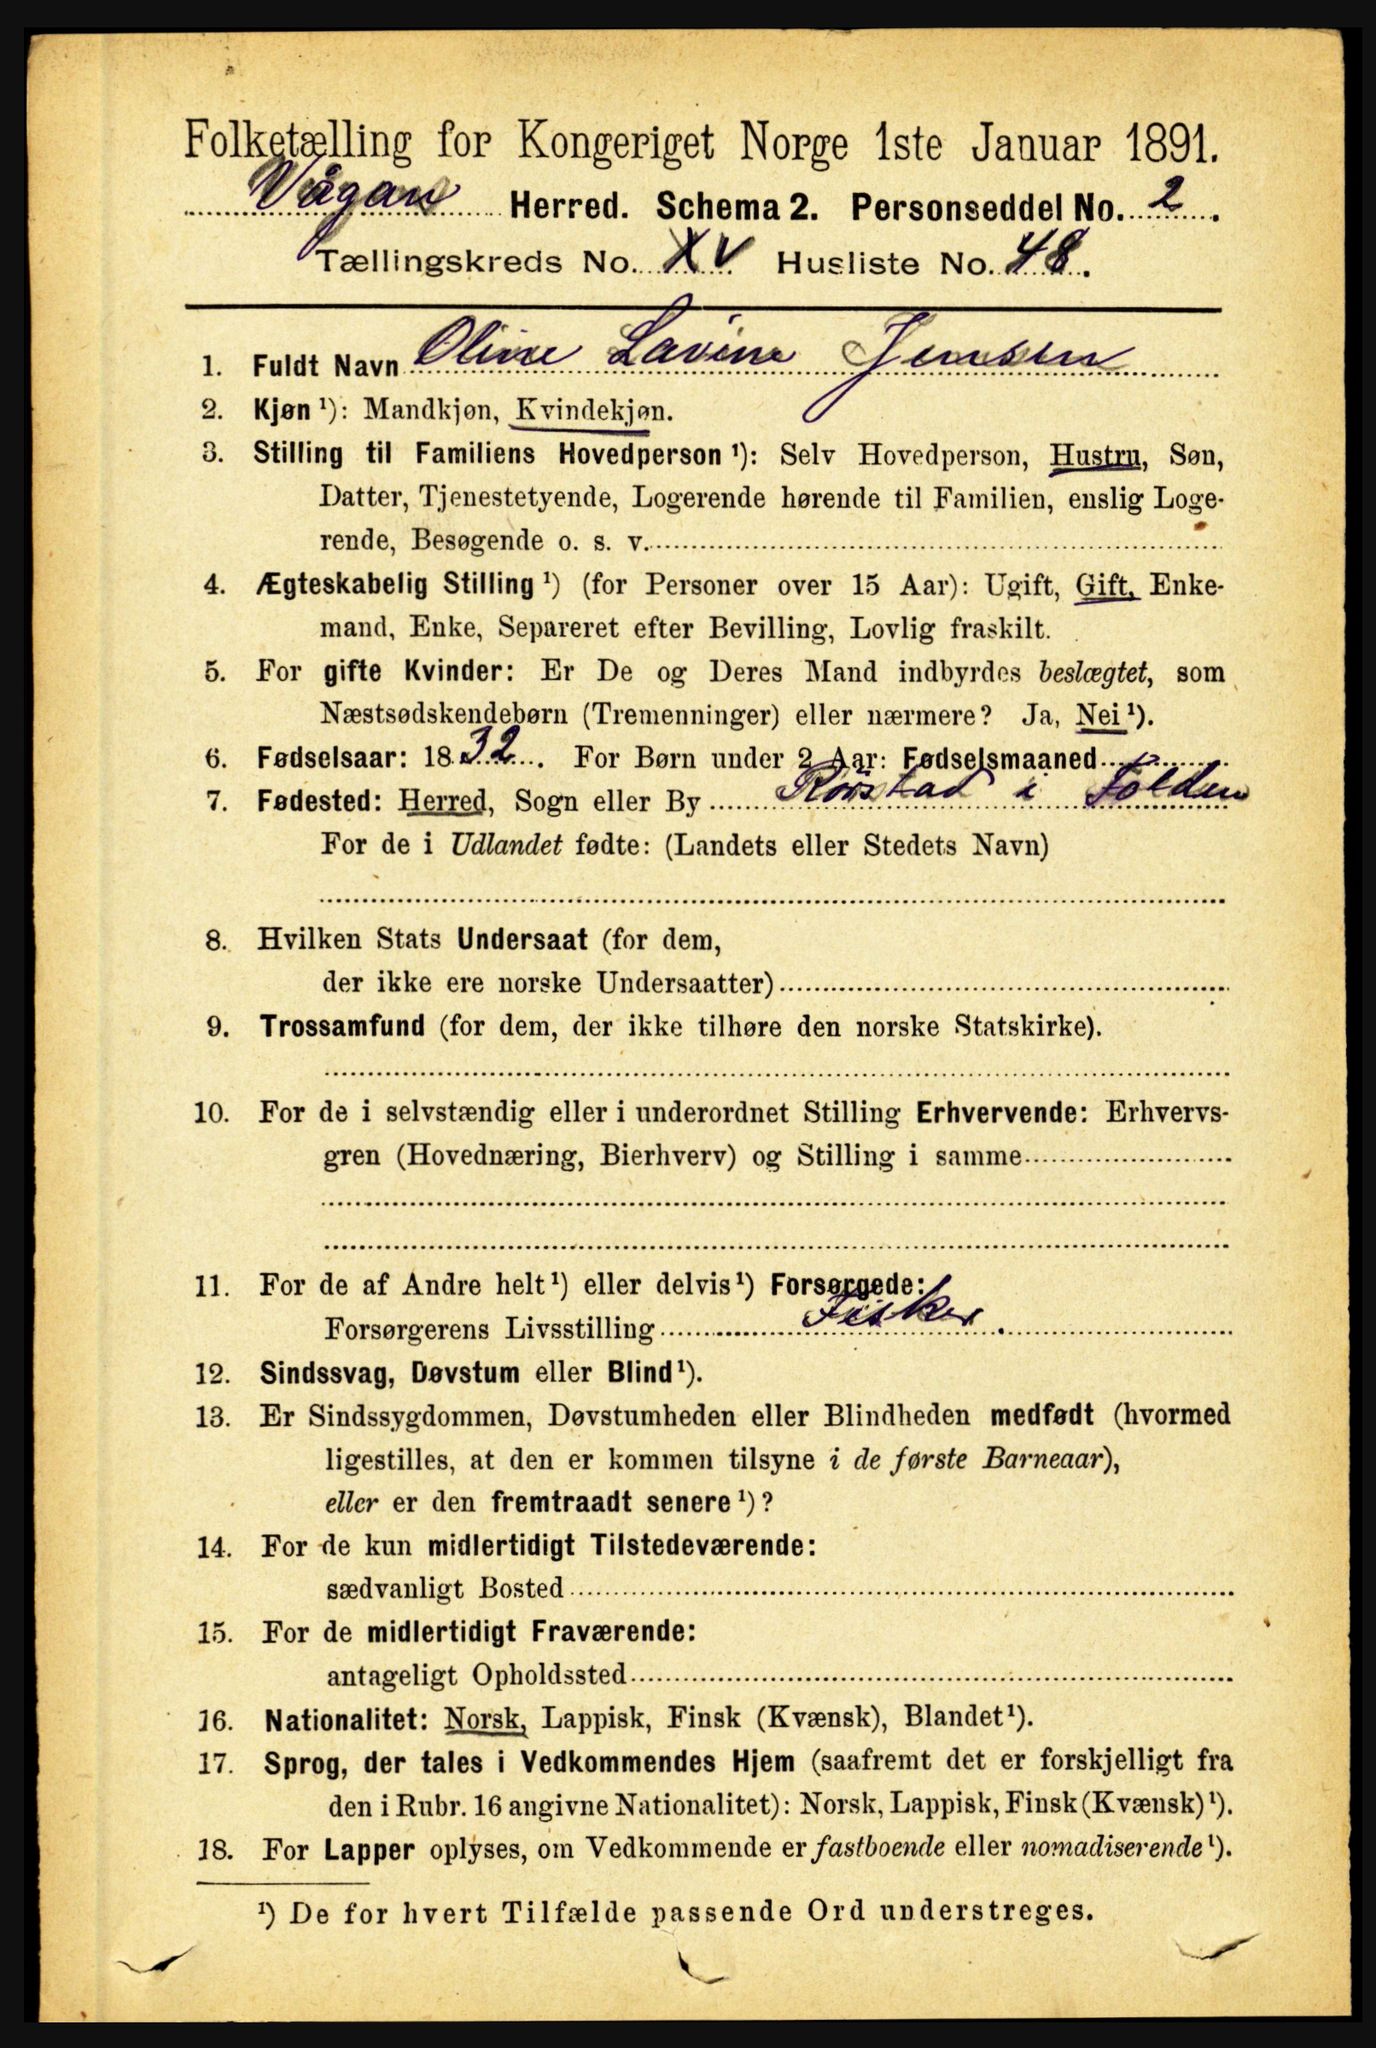 Folketælling for Kongeriget Norge 1ste Januar 1891.
Vågan Herred. Schema 2. Personseddel No. 2.
Tællingskreds No. XV Husliste No. 48.
1. Fuldt Navn Oline Lavine Jensen
2. Kjøn ¹): Mandkjøn, Kvindekjøn.
3. Stilling til Familiens Hovedperson ¹): Selv Hovedperson, Hustru, Søn,
Datter, Tjenestetyende, Logerende hørende til Familien, enslig Loge-
rende, Besøgende o. s. v.
4. Ægteskabelig Stilling ¹) (for Personer over 15 Aar): Ugift, Gift, Enke-
mand, Enke, Separeret efter Bevilling, Lovlig fraskilt.
5. For gifte Kvinder: Er De og Deres Mand indbyrdes beslægtet, som
Næstsødskendebørn (Tremenninger) eller nærmere? Ja, Nei ¹).
6. Fødselsaar: 1832. For Børn under 2 Aar: Fødselsmaaned
7. Fødested: Herred, Sogn eller By Rörstad i Folden
For de i Udlandet fødte: (Landets eller Stedets Navn)
8. Hvilken Stats Undersaat (for dem,
der ikke ere norske Undersaatter)
9. Trossamfund (for dem, der ikke tilhøre den norske Statskirke).
10. For de i selvstændig eller i underordnet Stilling Erhvervende: Erhvervs-
gren (Hovednæring, Bierhverv) og Stilling i samme
11. For de af Andre helt ¹) eller delvis ¹) Forsørgede:
Forsørgerens Livsstilling Fisker.
12. Sindssvag, Døvstum eller Blind ¹).
13. Er Sindssygdommen, Døvstumheden eller Blindheden medfødt (hvormed
ligestilles, at den er kommen tilsyne i de første Barneaar),
eller er den fremtraadt senere ¹)?
14. For de kun midlertidigt Tilstedeværende:
sædvanligt Bosted
15. For de midlertidigt Fraværende:
antageligt Opholdssted
16. Nationalitet: Norsk, Lappisk, Finsk (Kvænsk), Blandet ¹).
17. Sprog, der tales i Vedkommendes Hjem (saafremt det er forskjelligt fra
den i Rubr. 16 angivne Nationalitet): Norsk, Lappisk, Finsk (Kvænsk) ¹).
18. For Lapper oplyses, om Vedkommende er fastboende eller nomadiserende ¹).
¹) De for hvert Tilfælde passende Ord understreges.